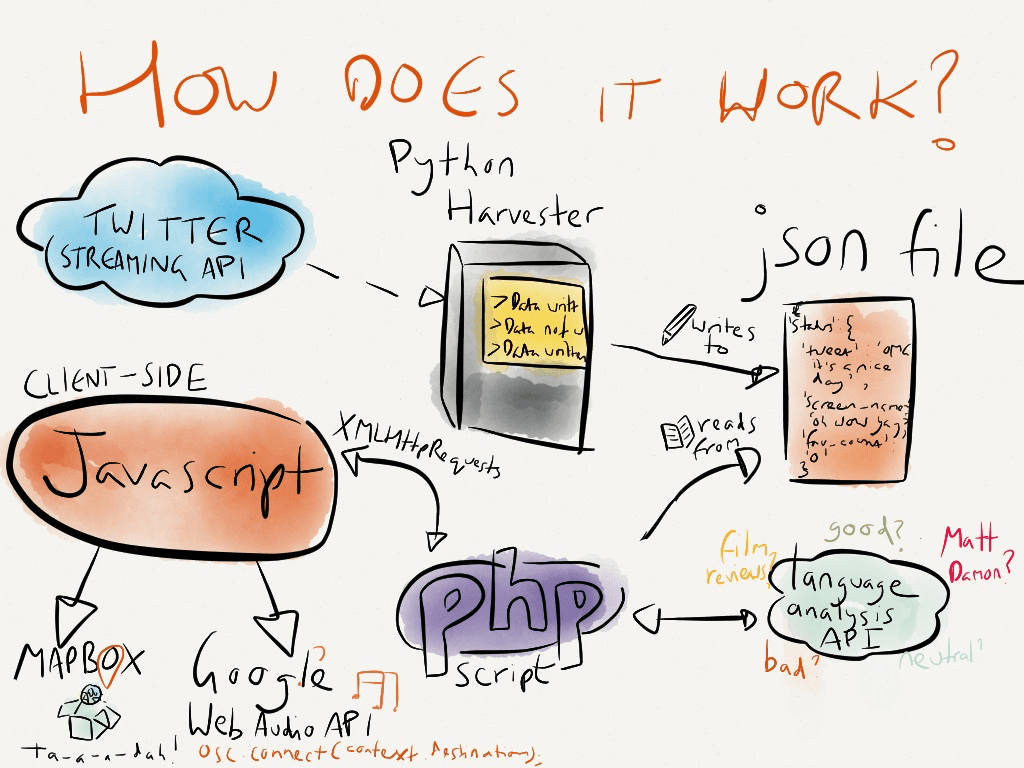 HOW DOES IT WORK?
Python
Harvester
TWITTER
(STREAMING API
json file
>Data writt
>Data not w
>Data written
writes
to
'status' {
'tweet' 'OMG
it's a nice
day',
'screen_name'
'oh wow yay',
'fav_count'
'0'
}
CLIENT-SIDE
Javascript
XMLHttpRequests
reads
from
php
script
good?
Film
reviews?
Matt
Damon?
language
analysis
API
bad?
neutral?
MAPBOX
Ta-a-a-dah!
Google
Web Audio API
osc.connect(context.destination);